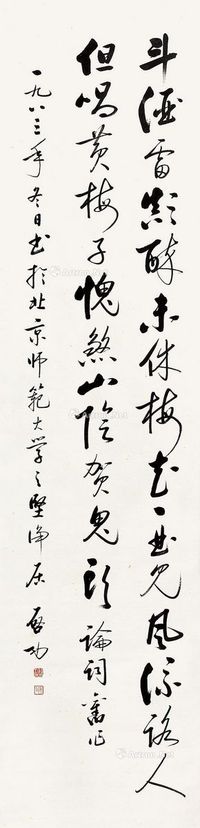 斗酒雷颠醉未休梅花一曲见风流路人
但唱黄梅子愧煞山阴贺鬼头 論詞舊作
一九八三年冬日书於北京师範大学之坚净居 启功